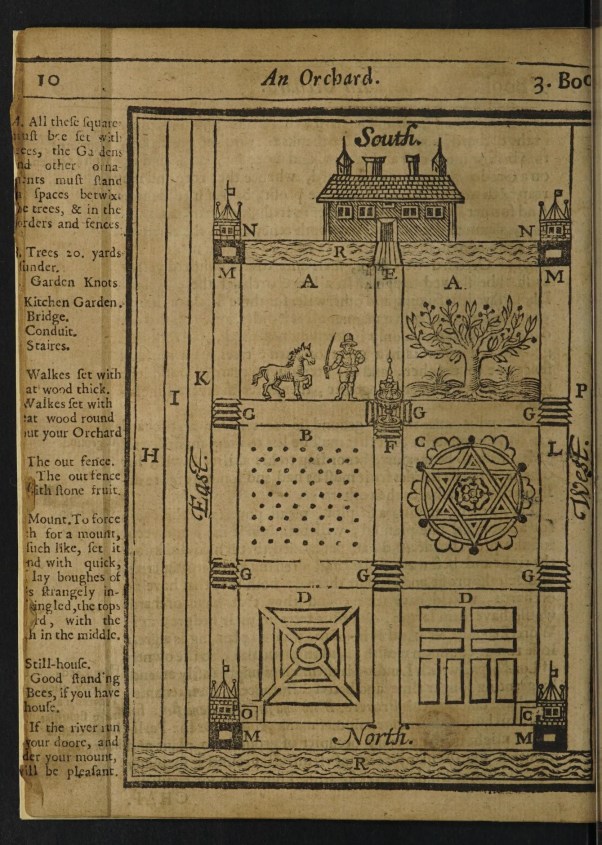 10 An Orchard. 3. Boo
All theſe ſquare
muſt bee ſet with
trees, the Gardens
and other orna-
ments muſt ſtand
ſpaces betwixt
the trees, & in the
borders and fences.
Trees 20. yards
aſunder.
Garden Knots
Kitchen Garden.
Bridge.
Conduit.
Staires.
Walkes ſet with
great wood thick.
Walkes ſet with
great wood round
about your Orchard
The out fence.
The out fence
ſet with ſtone fruit.
Mount. To force
for a mount,
ſuch like, ſet it
round with quick,
lay boughes of
ſtrangely in-
termingled, the tops
with the
in the middle.
Still-houſe.
Good ſtanding
Bees, if you have
houſe.
If the river run
your doore, and
under your mount,
will be pleaſant.
South.
N N
R
M E M
A A
K
I
P
G G G
F
B C
H L
East. West.
G G G
D D
O C
M North. M
R